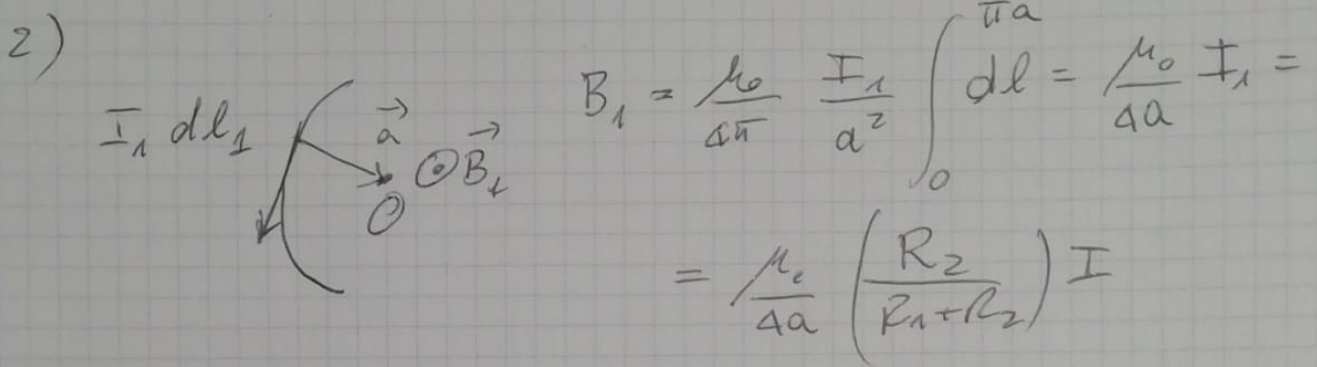 2)
I₁ dl₁ a⃗ ⊙ B⃗₁ O
B₁ = μ₀/4π I₁/a² ∫₀^πa dl = μ₀/4a I₁ =
= μ₀/4a (R₂/(R₁+R₂)) I